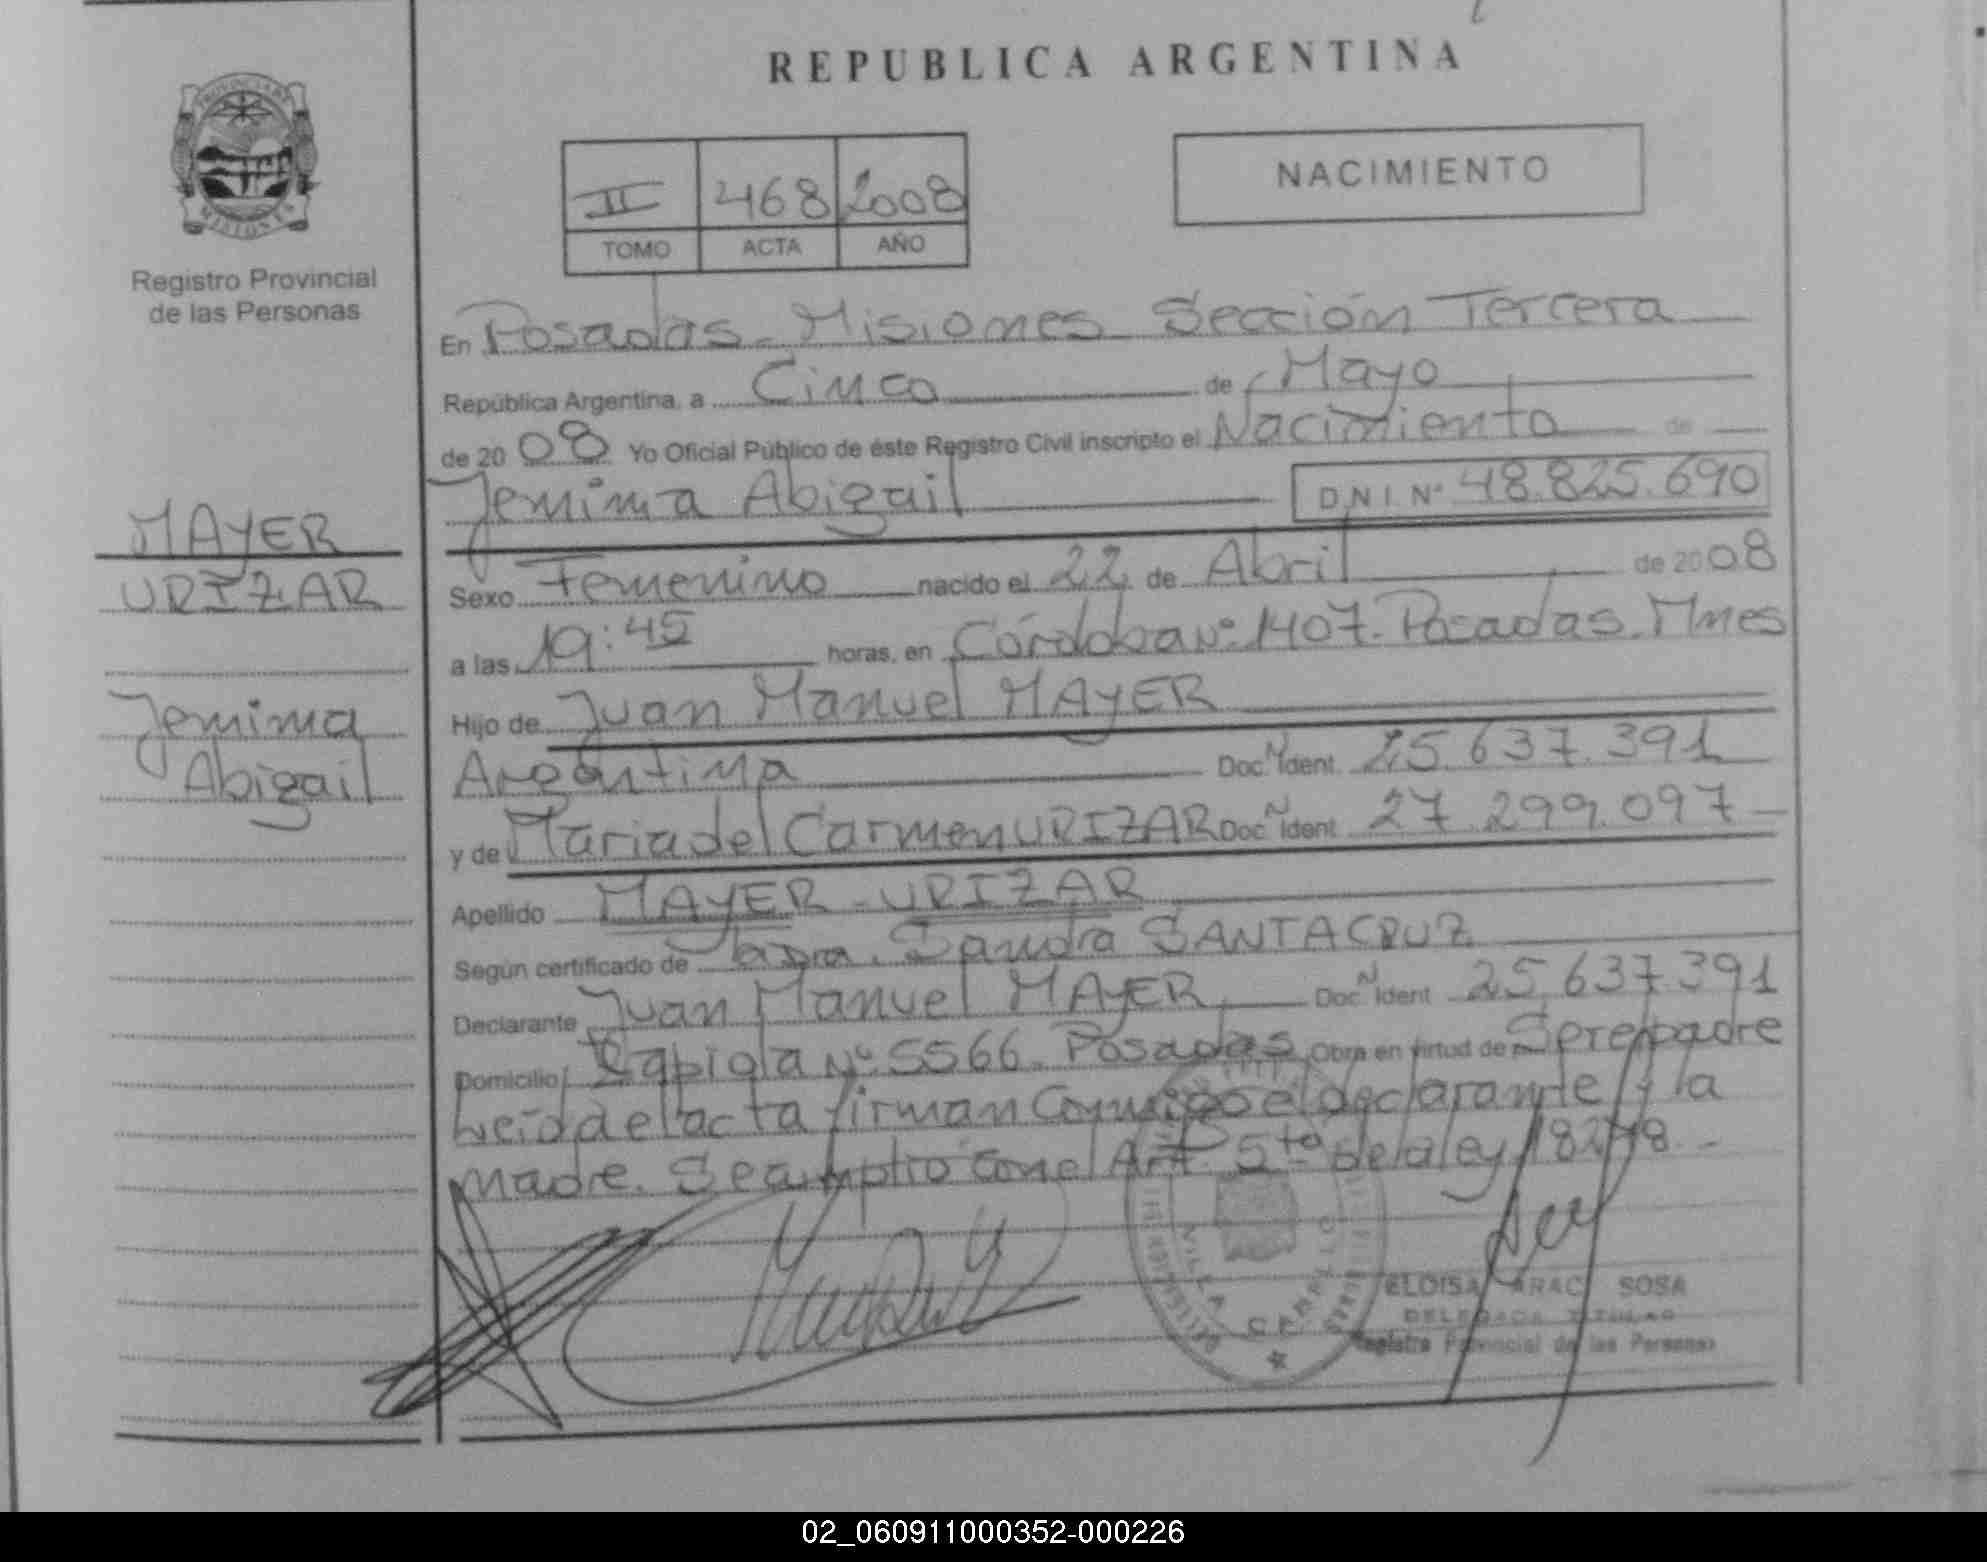 REPUBLICA ARGENTINA
PROVINCIA DE
MISIONES
Registro Provincial
de las Personas
II 468 2008
TOMO ACTA AÑO
NACIMIENTO
En Posadas - Misiones Sección Tercera
República Argentina, a Cinco de Mayo
de 2008 Yo Oficial Público de éste Registro Civil inscripto el Nacimiento de
Jemima Abigail D.N.I. Nº 48.825.690
MAYER
URIZAR
Jemima
Abigail
Sexo Femenino nacido el 22 de Abril de 2008
a las 19:45 horas, en Córdoba Nº 1407. Posadas. Mnes
Hijo de Juan Manuel MAYER
Argentina Doc. N Ident. 25.637.391
y de Maria del Carmen URIZAR Doc. N Ident. 27.299.097
Apellido MAYER - URIZAR
Según certificado de Sandra SANTACRUZ
Declarante Juan Manuel MAYER Doc. N Ident. 25.637.391
Domicilio Nº 5566. Posadas Obra en virtud de Ser el padre
Leída el acta firman Conmigo el declarante y la
madre. Se cumplio con el Art. 5to de la ley 18248.-
VILLA
ELOISA ARAC SOSA
DELEGADA TITULAR
Registro Provincial de las Personas
02_060911000352-000226